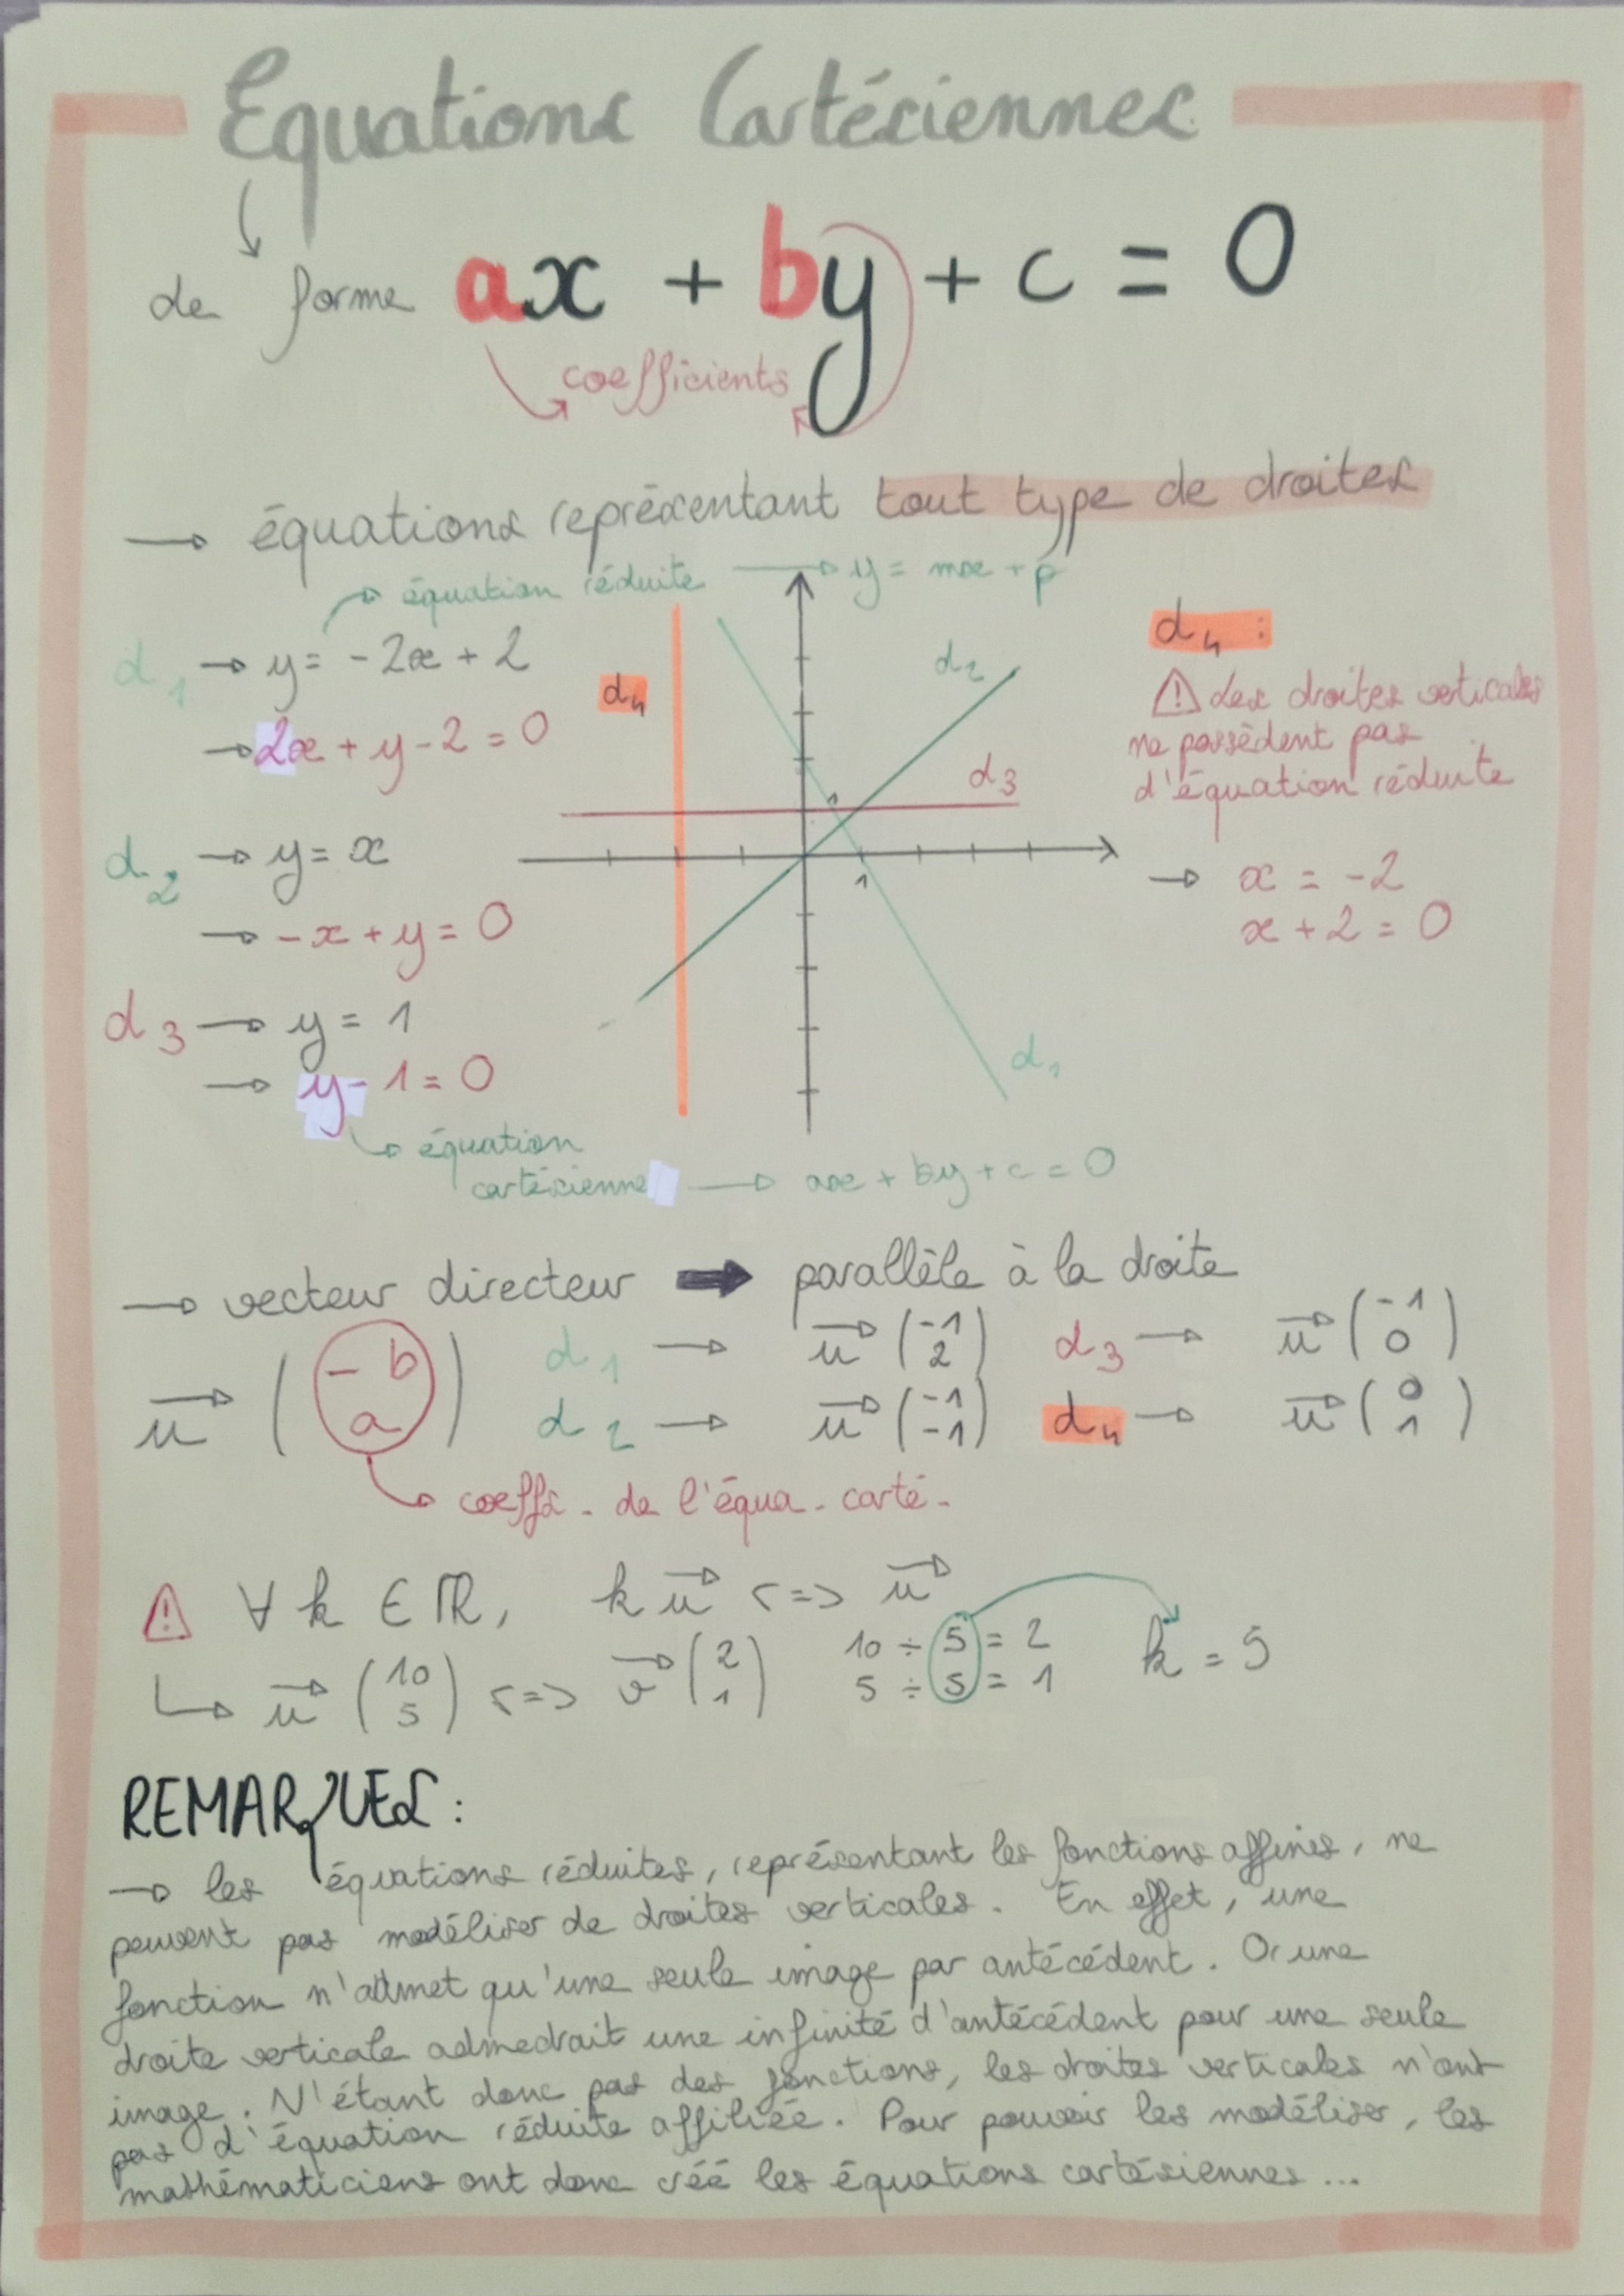 Equations Cartésiennes
de forme ax + by + c = 0
coefficients
→ équations représentant tout type de droites
équation réduite → y = mx + p
d₁ → y = -2x + 2
→ 2x + y - 2 = 0
d₂ → y = x
→ -x + y = 0
d₃ → y = 1
→ y - 1 = 0
équation
cartésienne → ax + by + c = 0
d₄
d₂
d₃
1
1
d₁
d₄ :
⚠ des droites verticales
ne possèdent pas
d'équation réduite
→ x = -2
x + 2 = 0
→ vecteur directeur ➡ parallèle à la droite
u⃗ (-b a)
d₁ → u⃗ (-1 2) d₃ → u⃗ (-1 0)
d₂ → u⃗ (-1 -1) d₄ → u⃗ (0 1)
coeffs. de l'équa. carté.
⚠ ∀ k ∈ ℝ, k u⃗ <=> u⃗
↳ u⃗ (10 5) <=> v⃗ (2 1)
10 ÷ 5 = 2
5 ÷ 5 = 1
k = 5
REMARQUES :
→ les équations réduites, représentant les fonctions affines, ne
peuvent pas modéliser de droites verticales. En effet, une
fonction n'admet qu'une seule image par antécédent. Or une
droite verticale admedrait une infinité d'antécédent pour une seule
image. N'étant donc pas des fonctions, les droites verticales n'ont
pas d'équation réduite affiliée. Pour pouvoir les modéliser, les
mathématiciens ont donc créé les équations cartésiennes...